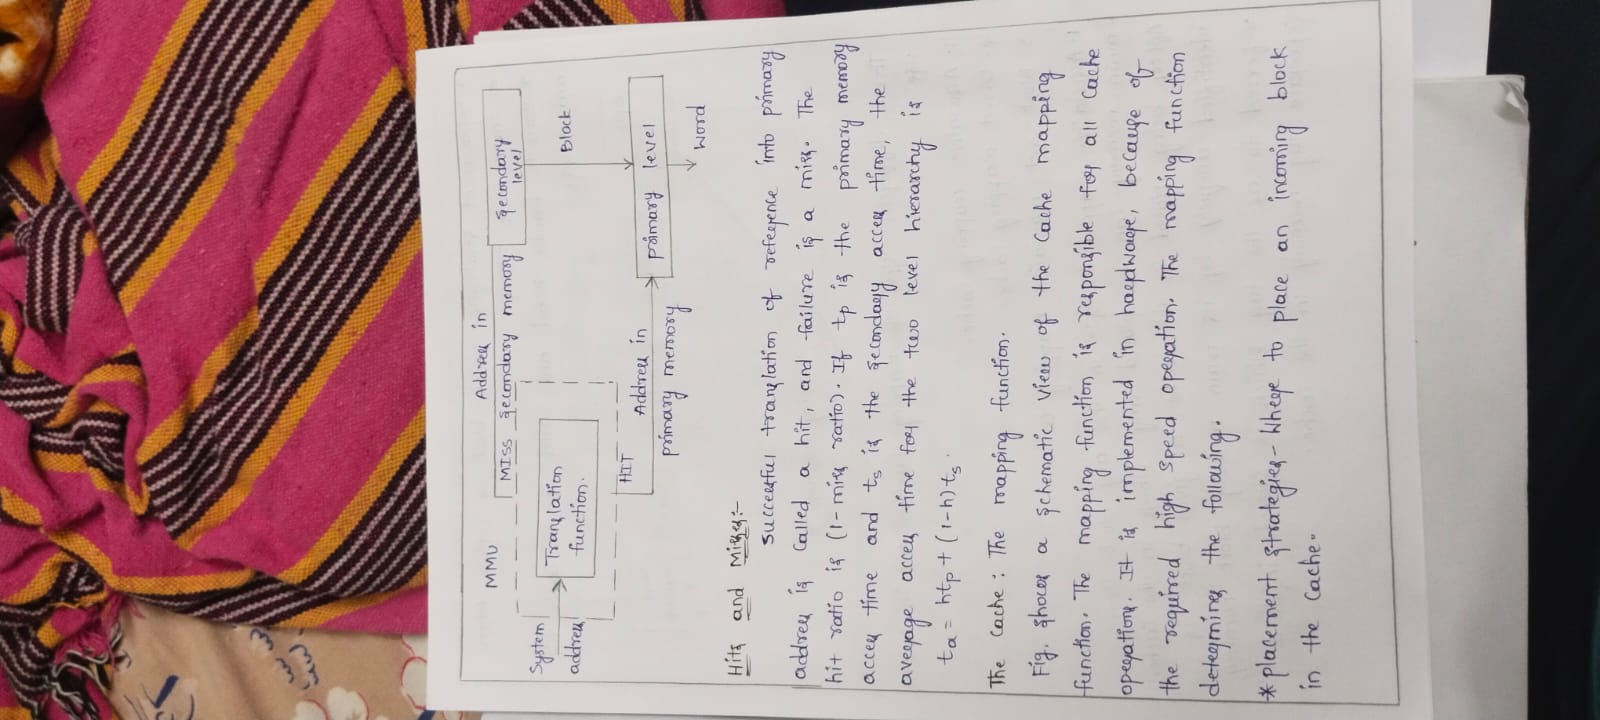 MMU
Address in
MISS Secondary memory
Secondary level
System address
Translation function.
Block
HIT
Address in
primary memory
primary level
Word
Hits and Misses:-
Successful translation of reference into primary
address is called a hit, and failure is a miss. The
hit ratio is (1-miss ratio). If tp is the primary memory
access time and ts is the secondary access time, the
average access time for the two level hierarchy is
ta = htp + (1-h)ts.
The Cache: The mapping function.
Fig. shows a schematic view of the Cache mapping
function. The mapping function is responsible for all Cache
operations. It is implemented in hardware, because of
the required high speed operation. The mapping function
determines the following.
* placement strategies - Where to place an incoming block
in the Cache.